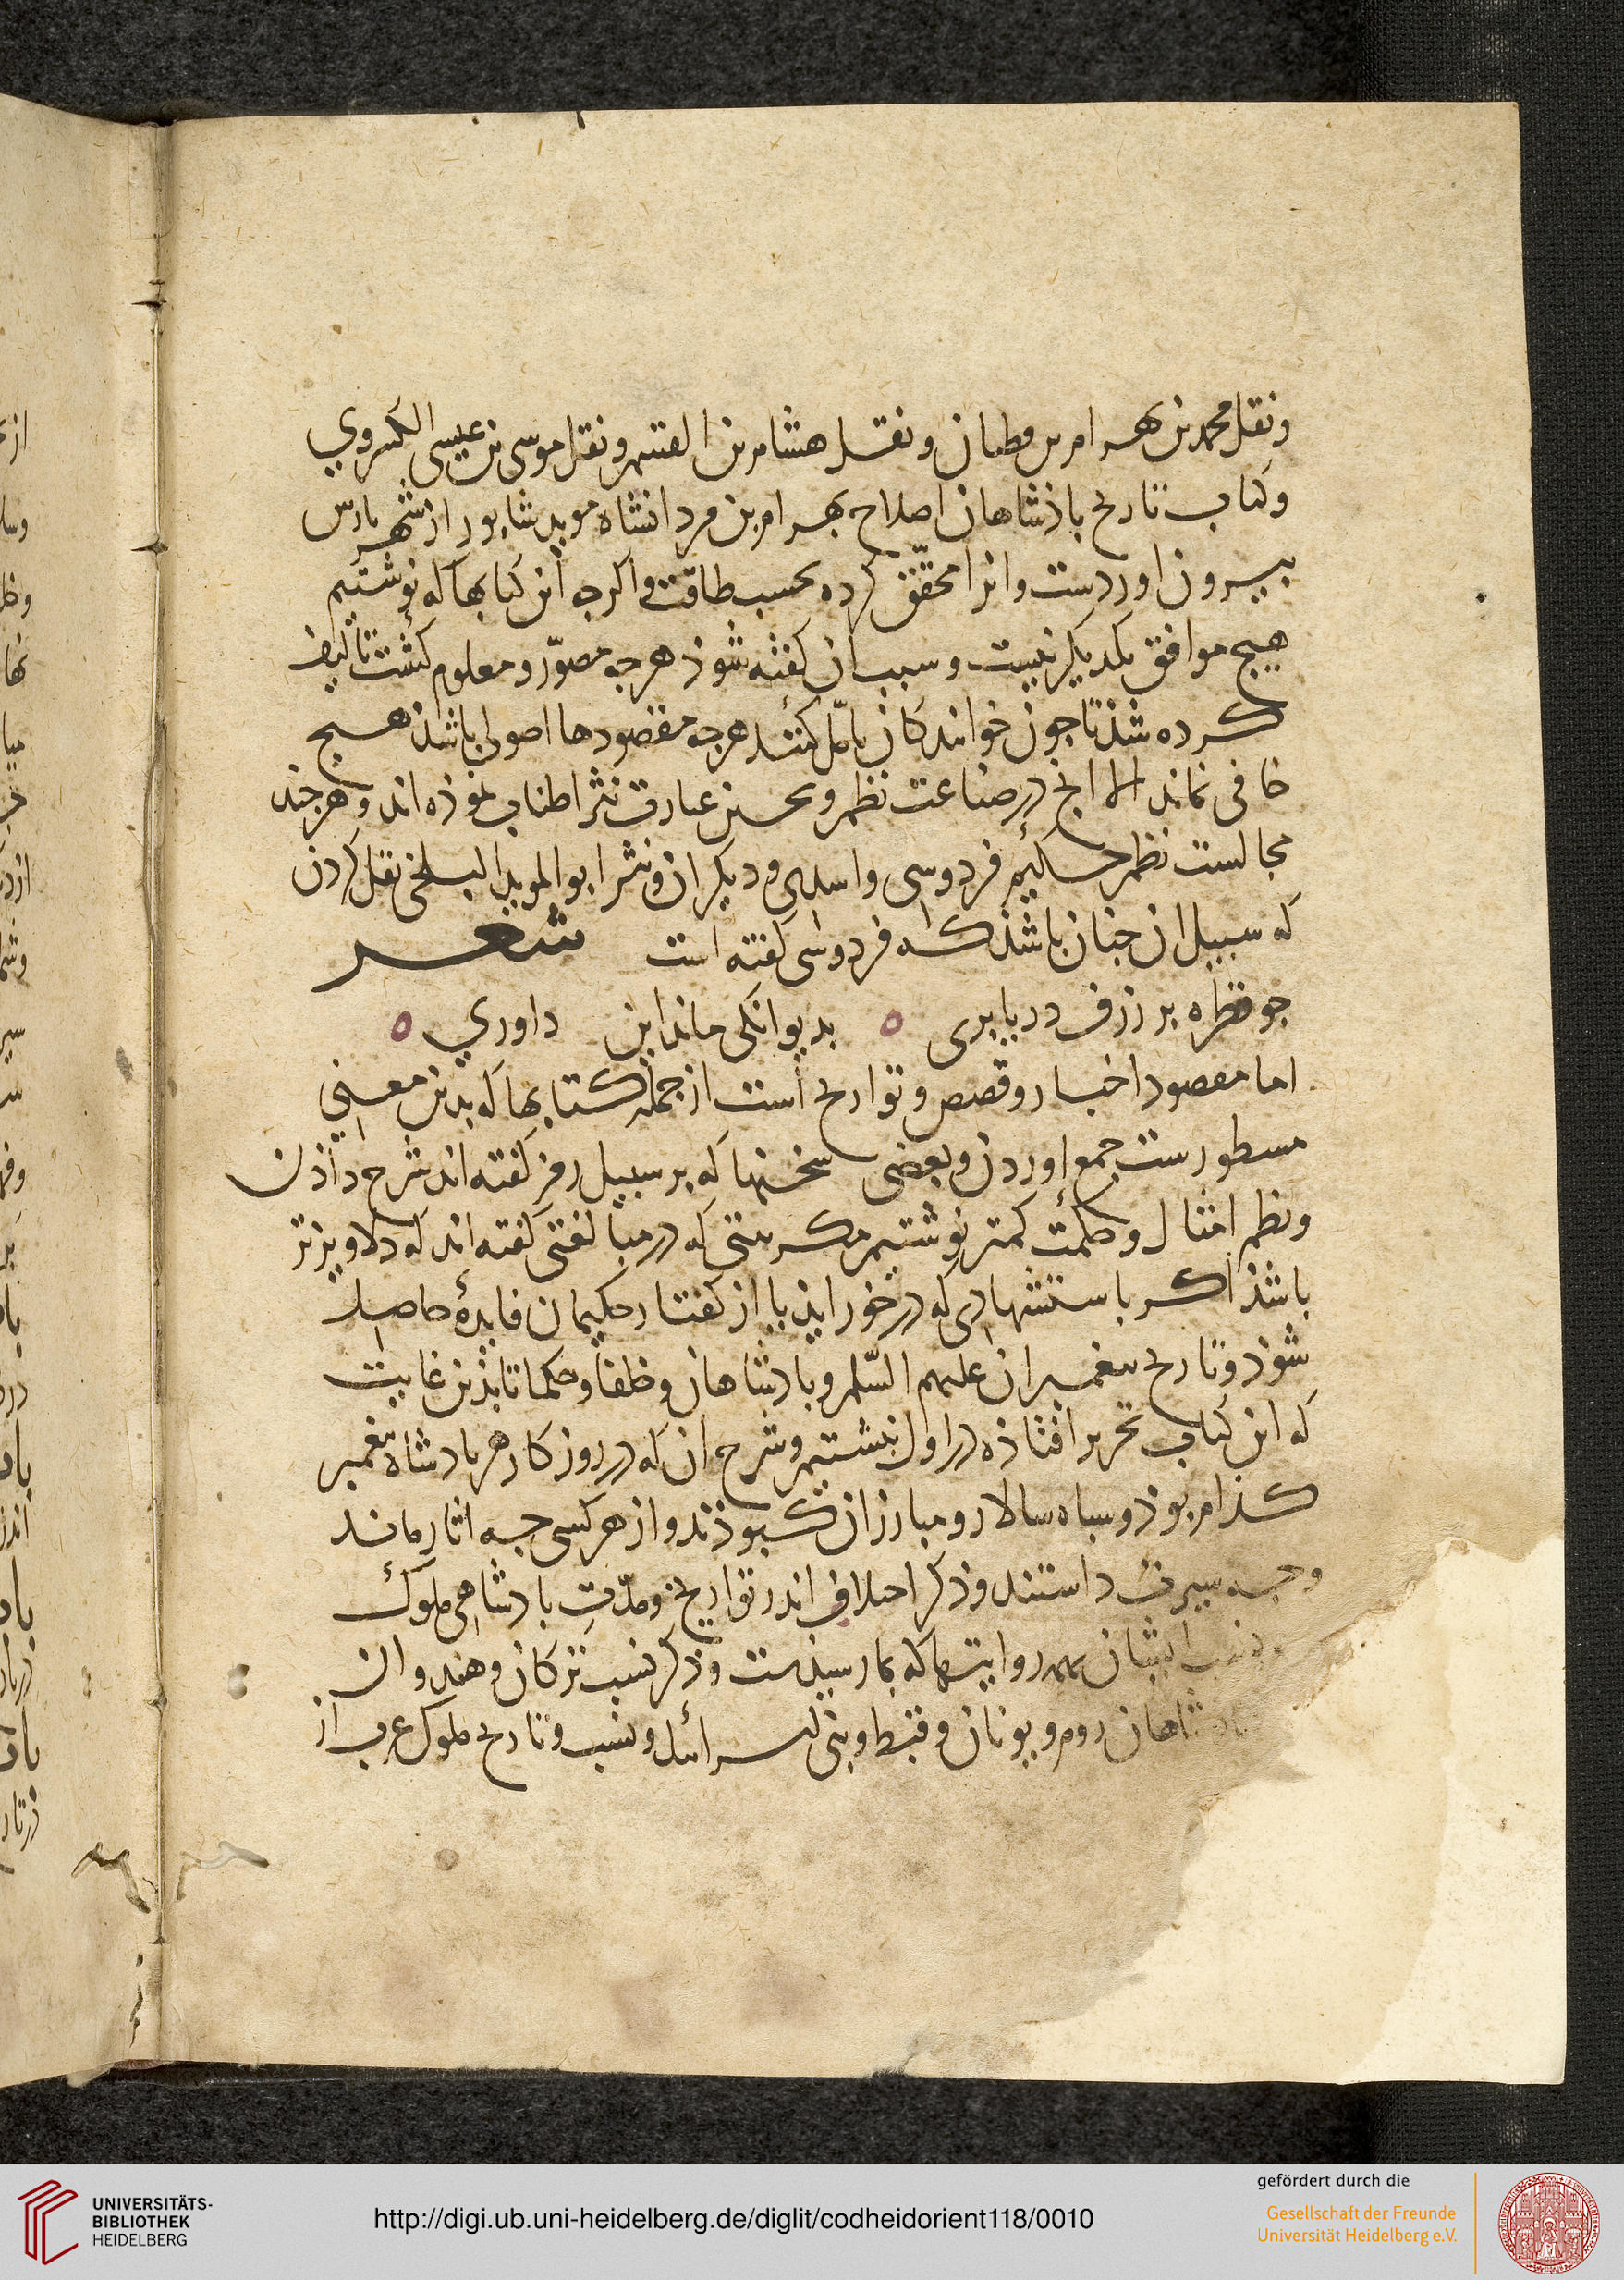 ونقل محمد بن بهرام بن مطیان ونقل هشام بن القسم ونقل موسی بن عیسی الکسروی
وکتاب تاریخ باذشاهان اصلاح بهرام بن مردانشاه موبد شابور از شهر بارس
بیرون اوردست وانرا محقّق کرده بحسب طاقت و اکرجه این کتابها که نوشتیم
هیج موافق یکدیکر نیست وسبب ان کفته شوذ هرجه مصوّر ومعلوم کشت تالیف
کرده شذ تا جون خوانندکان تامّل کنند هرجه مقصودها اصولی باشذ هیج
خافی نماند الا انج در صناعت نظم وبحسن عبارت نثر اطناب نموذه اند وهرجند
محالست نظم حکیم فردوسی واسدی ودیکران ونثر ابوالموید البلخی نقل کردن
که سبیل ان جنان باشذ که فردوسی کفته است شعر
جو قطره بر ژرف دریا بری ٥ بدیوانکی ماند این داوری ٥
اما مقصود اخبار وقصص وتواریخ است از جمله کتابها که بدین معنی
مسطورست جمع اوردن وبعضی سخنها که بر سبیل رمز کفته اند شرح داذن
ونظم امثال وحکمت کمتر نوشتیم مکر بیتی که در مبالغتی کفته اند که دلاویزتر
باشذ اکر باستشهادی که درخور اید یا از کفتار حکیمان فایدهٔ حاصل
شوذ وتاریخ بیغمبران علیهم السّلم وبادشاهان وخلفا وحکما تا بذین غایت
که این کتاب تحریر افتاذه در اول بنشتیم وشرح ان که در روزکار هر بادشاه بیغمبر
کذام بوذ وسباه سالار ومبارزان که بوذند واز هر کسی جه اثار ماند
وجه سیرت داشتند وذکر اختلاف اندر تواریخ ومدّت بادشاهی ملوک
ونسب ایشان بهمه روایتها که بما رسیذست وذکر نسب ترکان وهندوان
وبادشاهان روم ویونان وقبط وبنی اسرائیل ونسب وتاریخ ملوک عرب از
UNIVERSITÄTS-
BIBLIOTHEK
HEIDELBERG
http://digi.ub.uni-heidelberg.de/diglit/codheidorient118/0010
gefördert durch die
Gesellschaft der Freunde
Universität Heidelberg e.V.